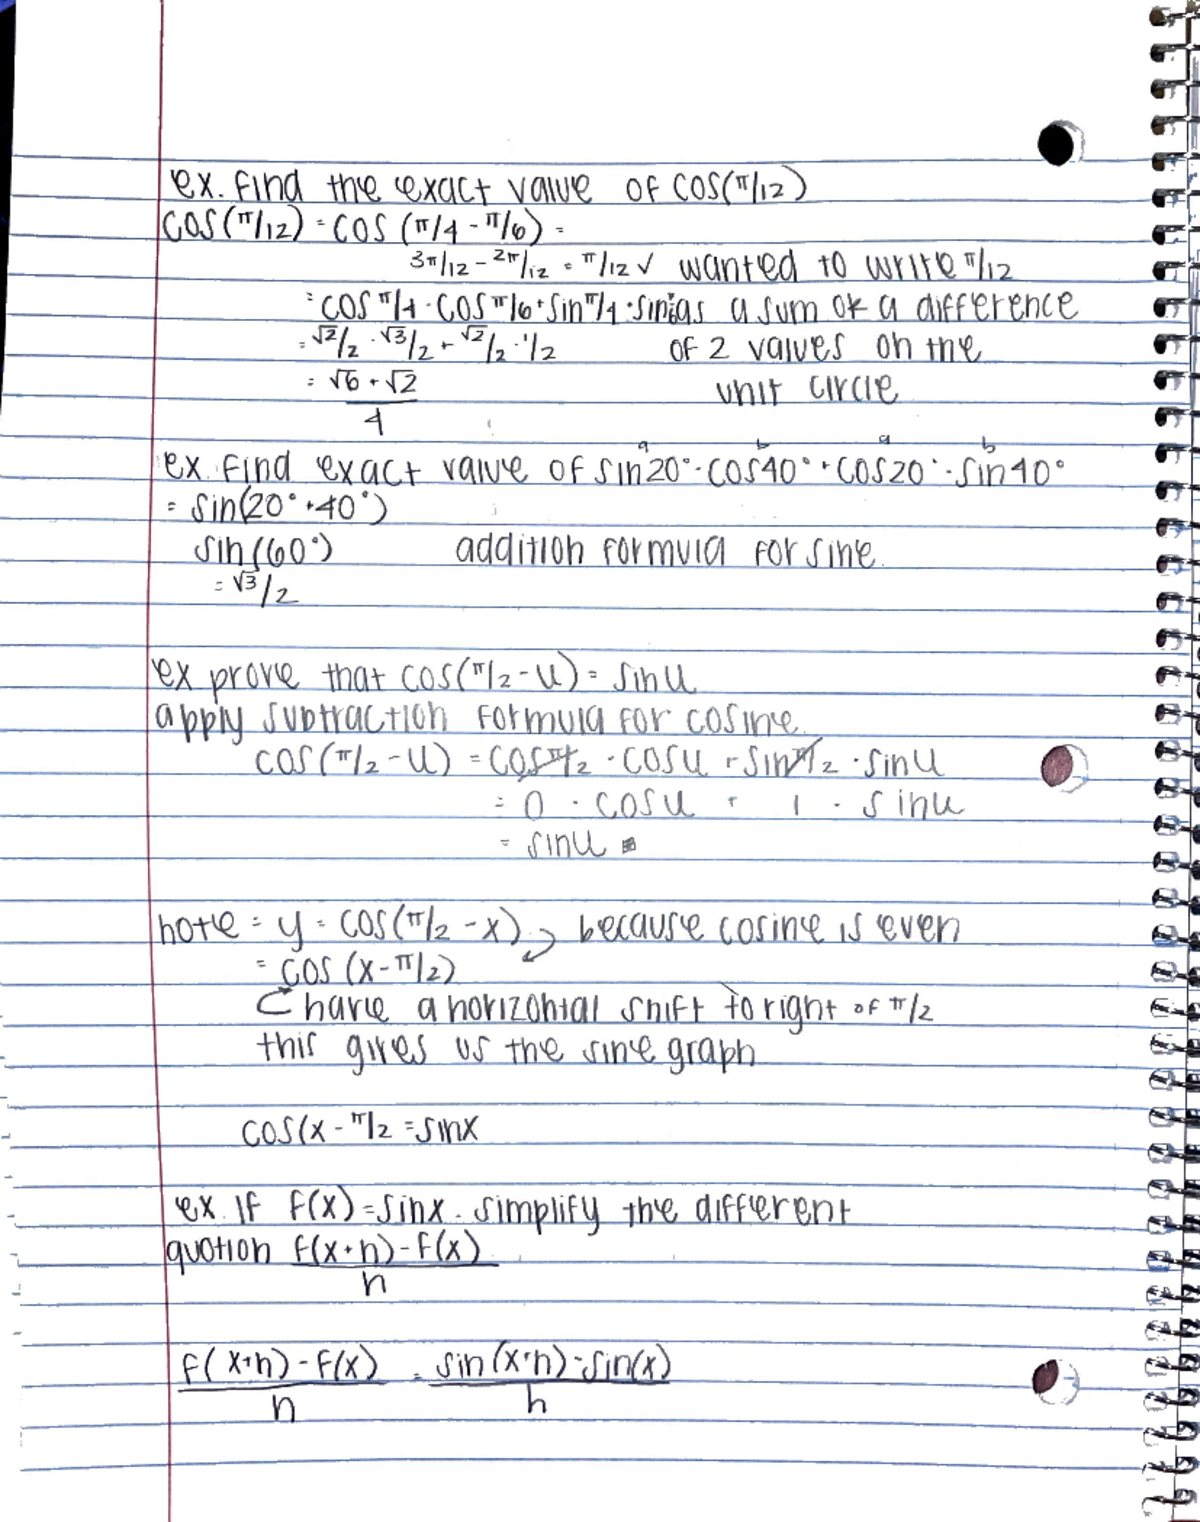 ex. find the exact value of cos(π/12)
cos(π/12) = cos (π/4 - π/6) =
3π/12 - 2π/12 = π/12 ✓ wanted to write π/12
= cos π/4 · cos π/6 + sin π/4 · sin π/6 as a sum or a difference
= √2/2 · √3/2 + √2/2 · 1/2 of 2 values on the
= √6 + √2 unit circle
4
a b a b
ex. find exact value of sin20° · cos40° + cos20° · sin40°
= sin(20° + 40°)
sin(60°) addition formula for sine.
= √3/2
ex prove that cos(π/2 - u) = sinu
apply subtraction formula for cosine.
cos(π/2 - u) = cosπ/2 · cosu + sinπ/2 · sinu
= 0 · cosu + 1 · sinu
= sinu
note = y = cos(π/2 - x) because cosine is even
= cos (x - π/2)
have a horizontal shift to right of π/2
this gives us the sine graph
cos(x - π/2 = sinx
ex. If f(x) = sinx. simplify the different
quotion f(x+h) - f(x)
h
f(x+h) - f(x) = sin(x+h) - sin(x)
h h